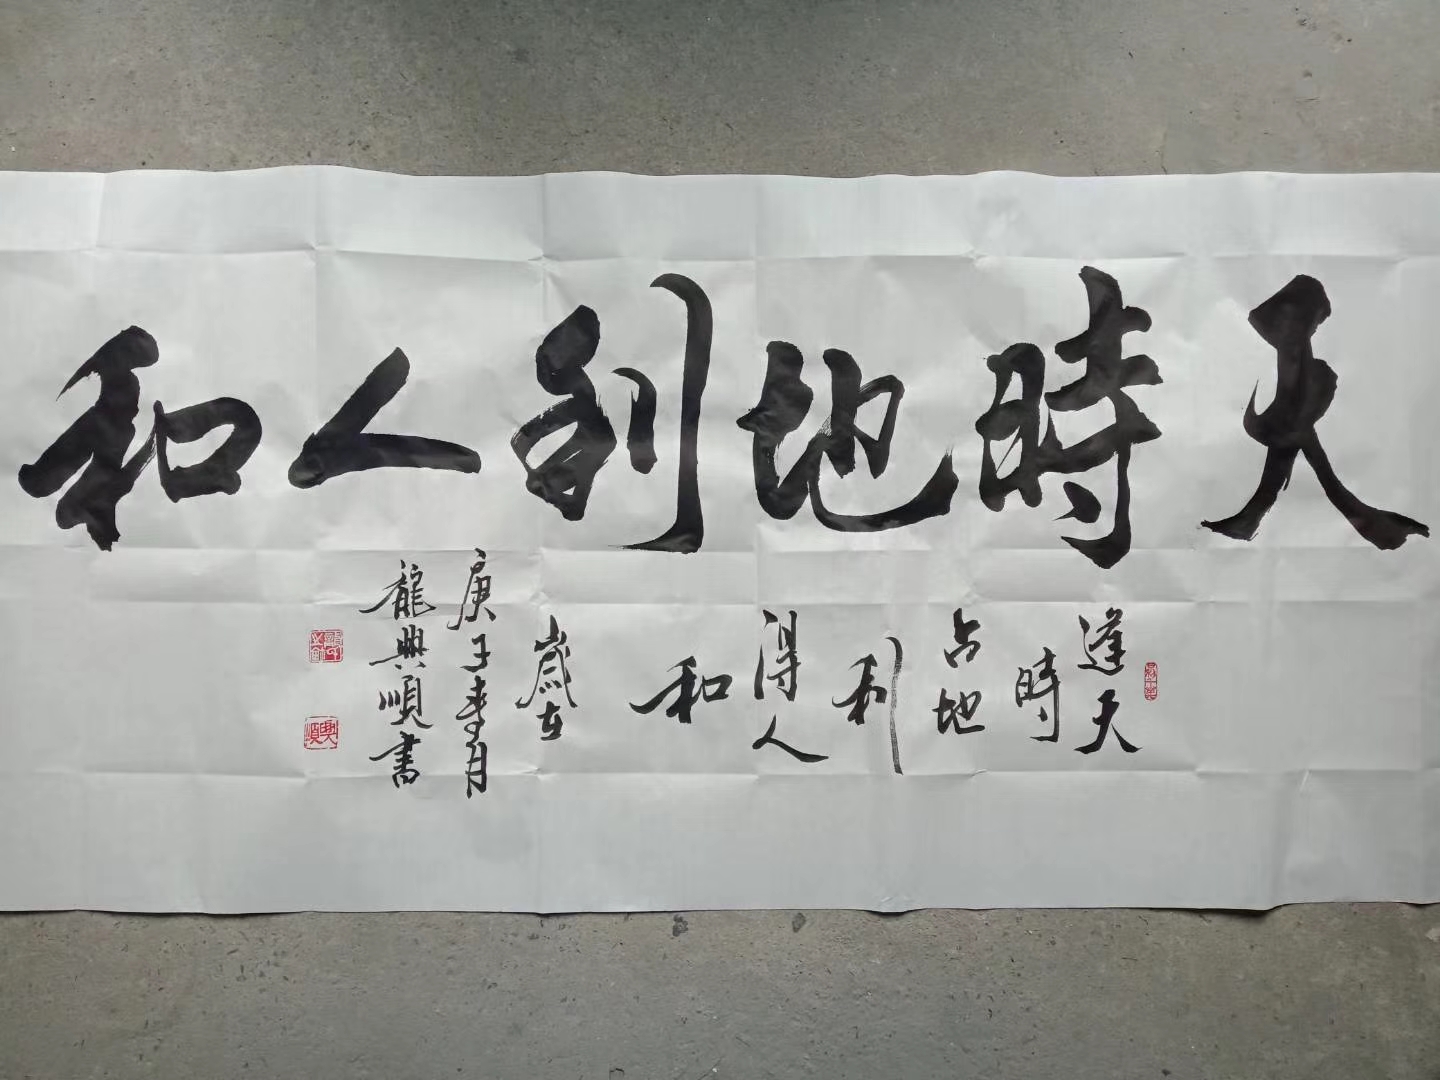 天時地利人和
逢天
時
占地
利
得人
和
歲在
庚子春月
龍興順書
興順